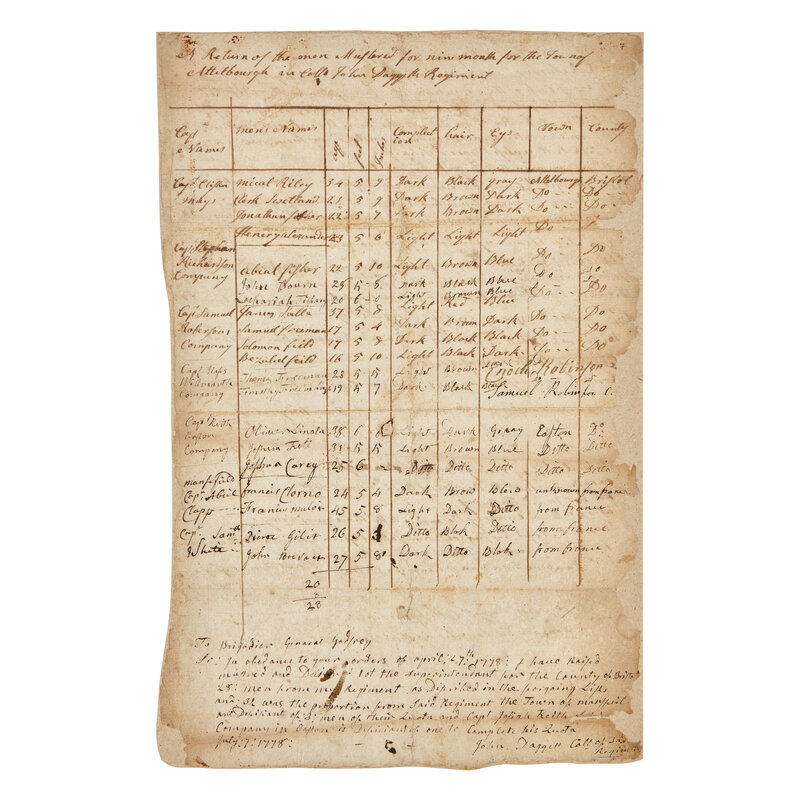 A Return of the men Mustered for nin month for the Town of
Attelbourgh in Colo John Daggetts Regiment
Capt Names | mens Names | age | feet | Inches | Complection | hair | Eys | Town | County
Capt Elisha | mical Riley | 34 | 5 | 9 | Dark | Black | gray | Attelbourgh | Bristol
mays | Clerk Swetland | 21 | 5 | 9 | Dark | Brown | Dark | Do | Do
Jonathan | 22 | 5 | 7 | Dark | Brown | Dark | Do | Do
Henery alexander | 23 | 5 | 6 | Light | Light | Light | Do
Capt Stephen
Richardson | abial fisher | 22 | 5 | 10 | Light | Brown | Blue | Do | Do
Company | John Bourn | 25 | 5 | 5 | Dark | Black | Blue | Do | Do
Zephaniah | 20 | 6 | 0 | Light | Brown | Blue | Do | Do
Capt Samuel | James | 37 | 5 | 8 | Light | Red | Blue
Robersons | Samuel freeman | 17 | 5 | 4 | Dark | Brown | Dark | Do | Do
Company | Solomon feild | 17 | 5 | 8 | Dark | Black | Dark | Do | Do
Bezaliel feild | 16 | 5 | 10 | Light | Black | Dark | Do | Do
Capt | Thomas Freeman | 28 | 5 | 5 | Light | Brown | Enoch Robinson
Timothy Freeman | 19 | 5 | 7 | Dark | Black | Black | Samuel Robinson
Company
Capt Keith
Easton | Oliver Lincoln | 38 | 6 | Light | Dark | Graay | Easton | Do
Company | Joshua | 31 | 5 | 5 | Light | Brown | Blue | Ditto | Ditto
Joshua Carey | 25 | 6 | - | Ditto | Ditto | Ditto | Ditto | Ditto
mansfield
Capt Abiel | francis | 24 | 5 | 4 | Dark | Brow | Blew | unknown | from france
Clapp | Francis | 45 | 5 | 8 | Light | Dark | Ditto | from france
Capt Saml | 26 | 5 | Ditto | Blak | Ditto | from france
White | John | 27 | 5 | 8 | Dark | Ditto | Blak | from france
20
8
28
To Brigadier General Godfrey
Sr: In obedance to your orders of april 27th 1778: I have Raised
mustred and Delivered tot the Superintendant for the County of Bristol
28: men from my Regiment as Discribed in the forgoing Lists
and 32 was the proportion from Said Regiment the Town of mansfeil
and Difisiant of 3: men of their Quota and Capt Josiah Keith
Company in Easton is Difisiant of one to Complete his Quota
July: 7: 1778:
John Daggett Collo of Said
Regiment